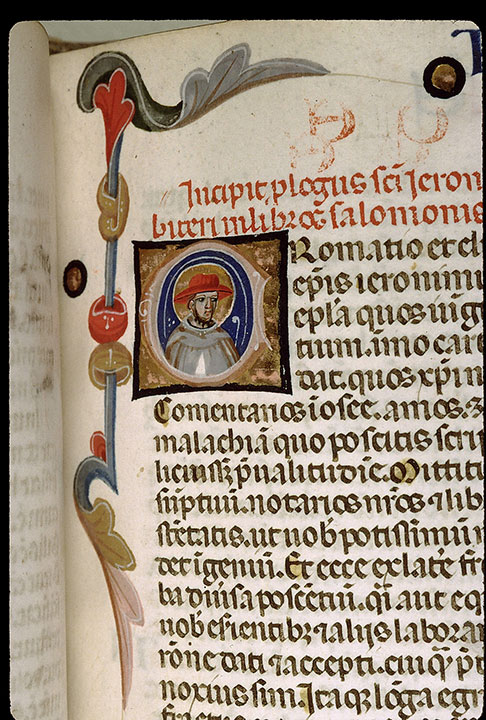 Incipit plogus sci ieron
biteri in libros salomonis
Romatio et eli
epis ieronimu
epla quos iu
tium. imo car
dat. quos xpi
Comentarios i osee. amos. z
malachia quo poscitis scri
licuiss p ualitudie. Mittiti
suptuu. notarios nros lib
stetatis. ut nob potissimu
det igeniu. Et ecce ex late fre
ba diuisa poscetiu. qi aut eq
nob esientibz aliis labora
rone dati accepti. cuiq p
noxius sim. Itaqz loga egr